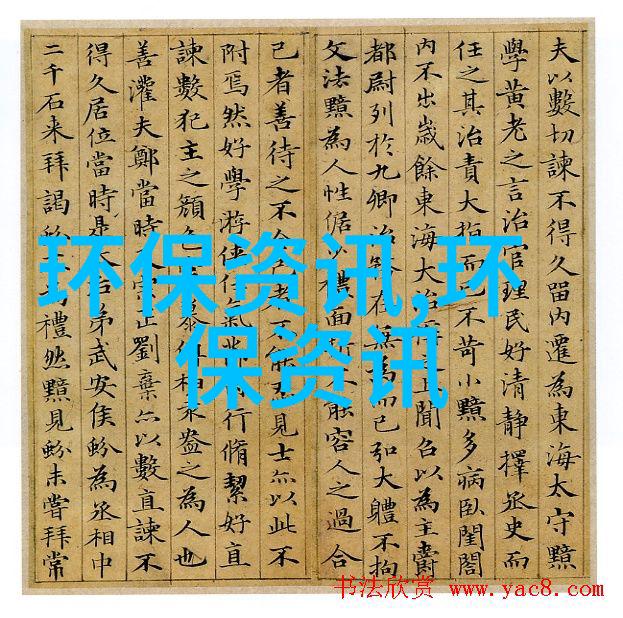 夫以數切諫不得久留內遷為東海太守黯
學黃老之言治官理民好清靜擇丞史而
任之其治責大指而已不苛小黯多病臥閨閤
內不出歲餘東海大治之上聞召以為主爵
都尉列於九卿治務在無為而已弘大體不拘
文法黯為人性倨少禮面折能容人之過合
己者善待之不合者不能忍見士亦以此不
附焉然好學游俠任氣行脩絜好直
諫數犯主之顏色慕柏袁盎之為人也
善灌夫鄭當時宗正劉棄亦以數直諫不
得久居位當時是太后弟武安侯蚡為丞相中
二千石来拜謁蚡為禮然黯見蚡未嘗拜常
环保资讯,环
保资讯
书法欣赏 www.yac8.com